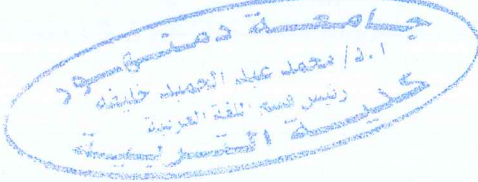 جامعة دمنهور
ا.د/ محمد عبد الحميد خليفه
رئيس قسم اللغة العربية
كلية التربية